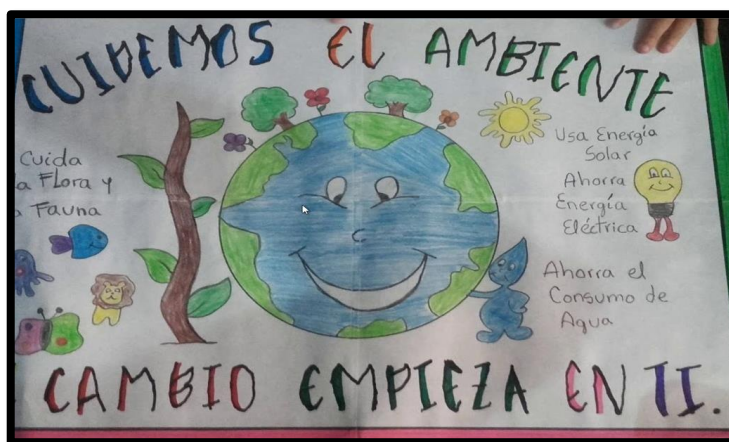 CUIDEMOS EL AMBIENTE
Cuida
a Flora y
Fauna
Usa Energía
Solar
Ahorra
Energía
Eléctrica
Ahorra el
Consumo de
Agua
CAMBIO EMPIEZA EN TI.